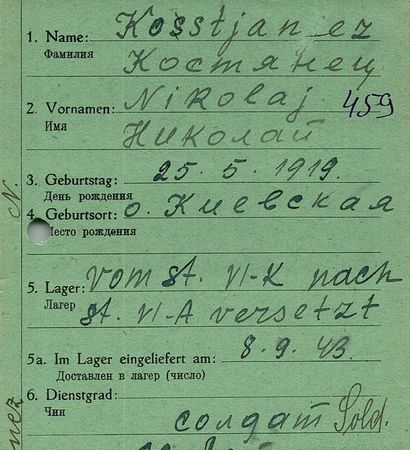 1. Name: Kosstjanez
Фамилия Костянец
2. Vornamen: Nikolaj 459
Имя Николай
3. Geburtstag: 25. 5. 1919.
День рождения
4. Geburtsort: о. Киевская
Место рождения
5. Lager: vom st. VI-K nach
Лагер st. VI-A versetzt
5a. Im Lager eingeliefert am: 8. 9. 43
Доставлен в лагер (число)
6. Dienstgrad:
Чин солдат Sold.